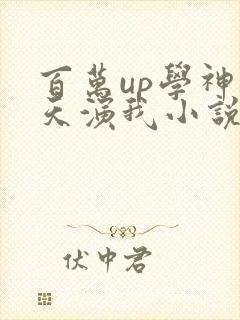 百萬up學神
天演我小說
伏中君